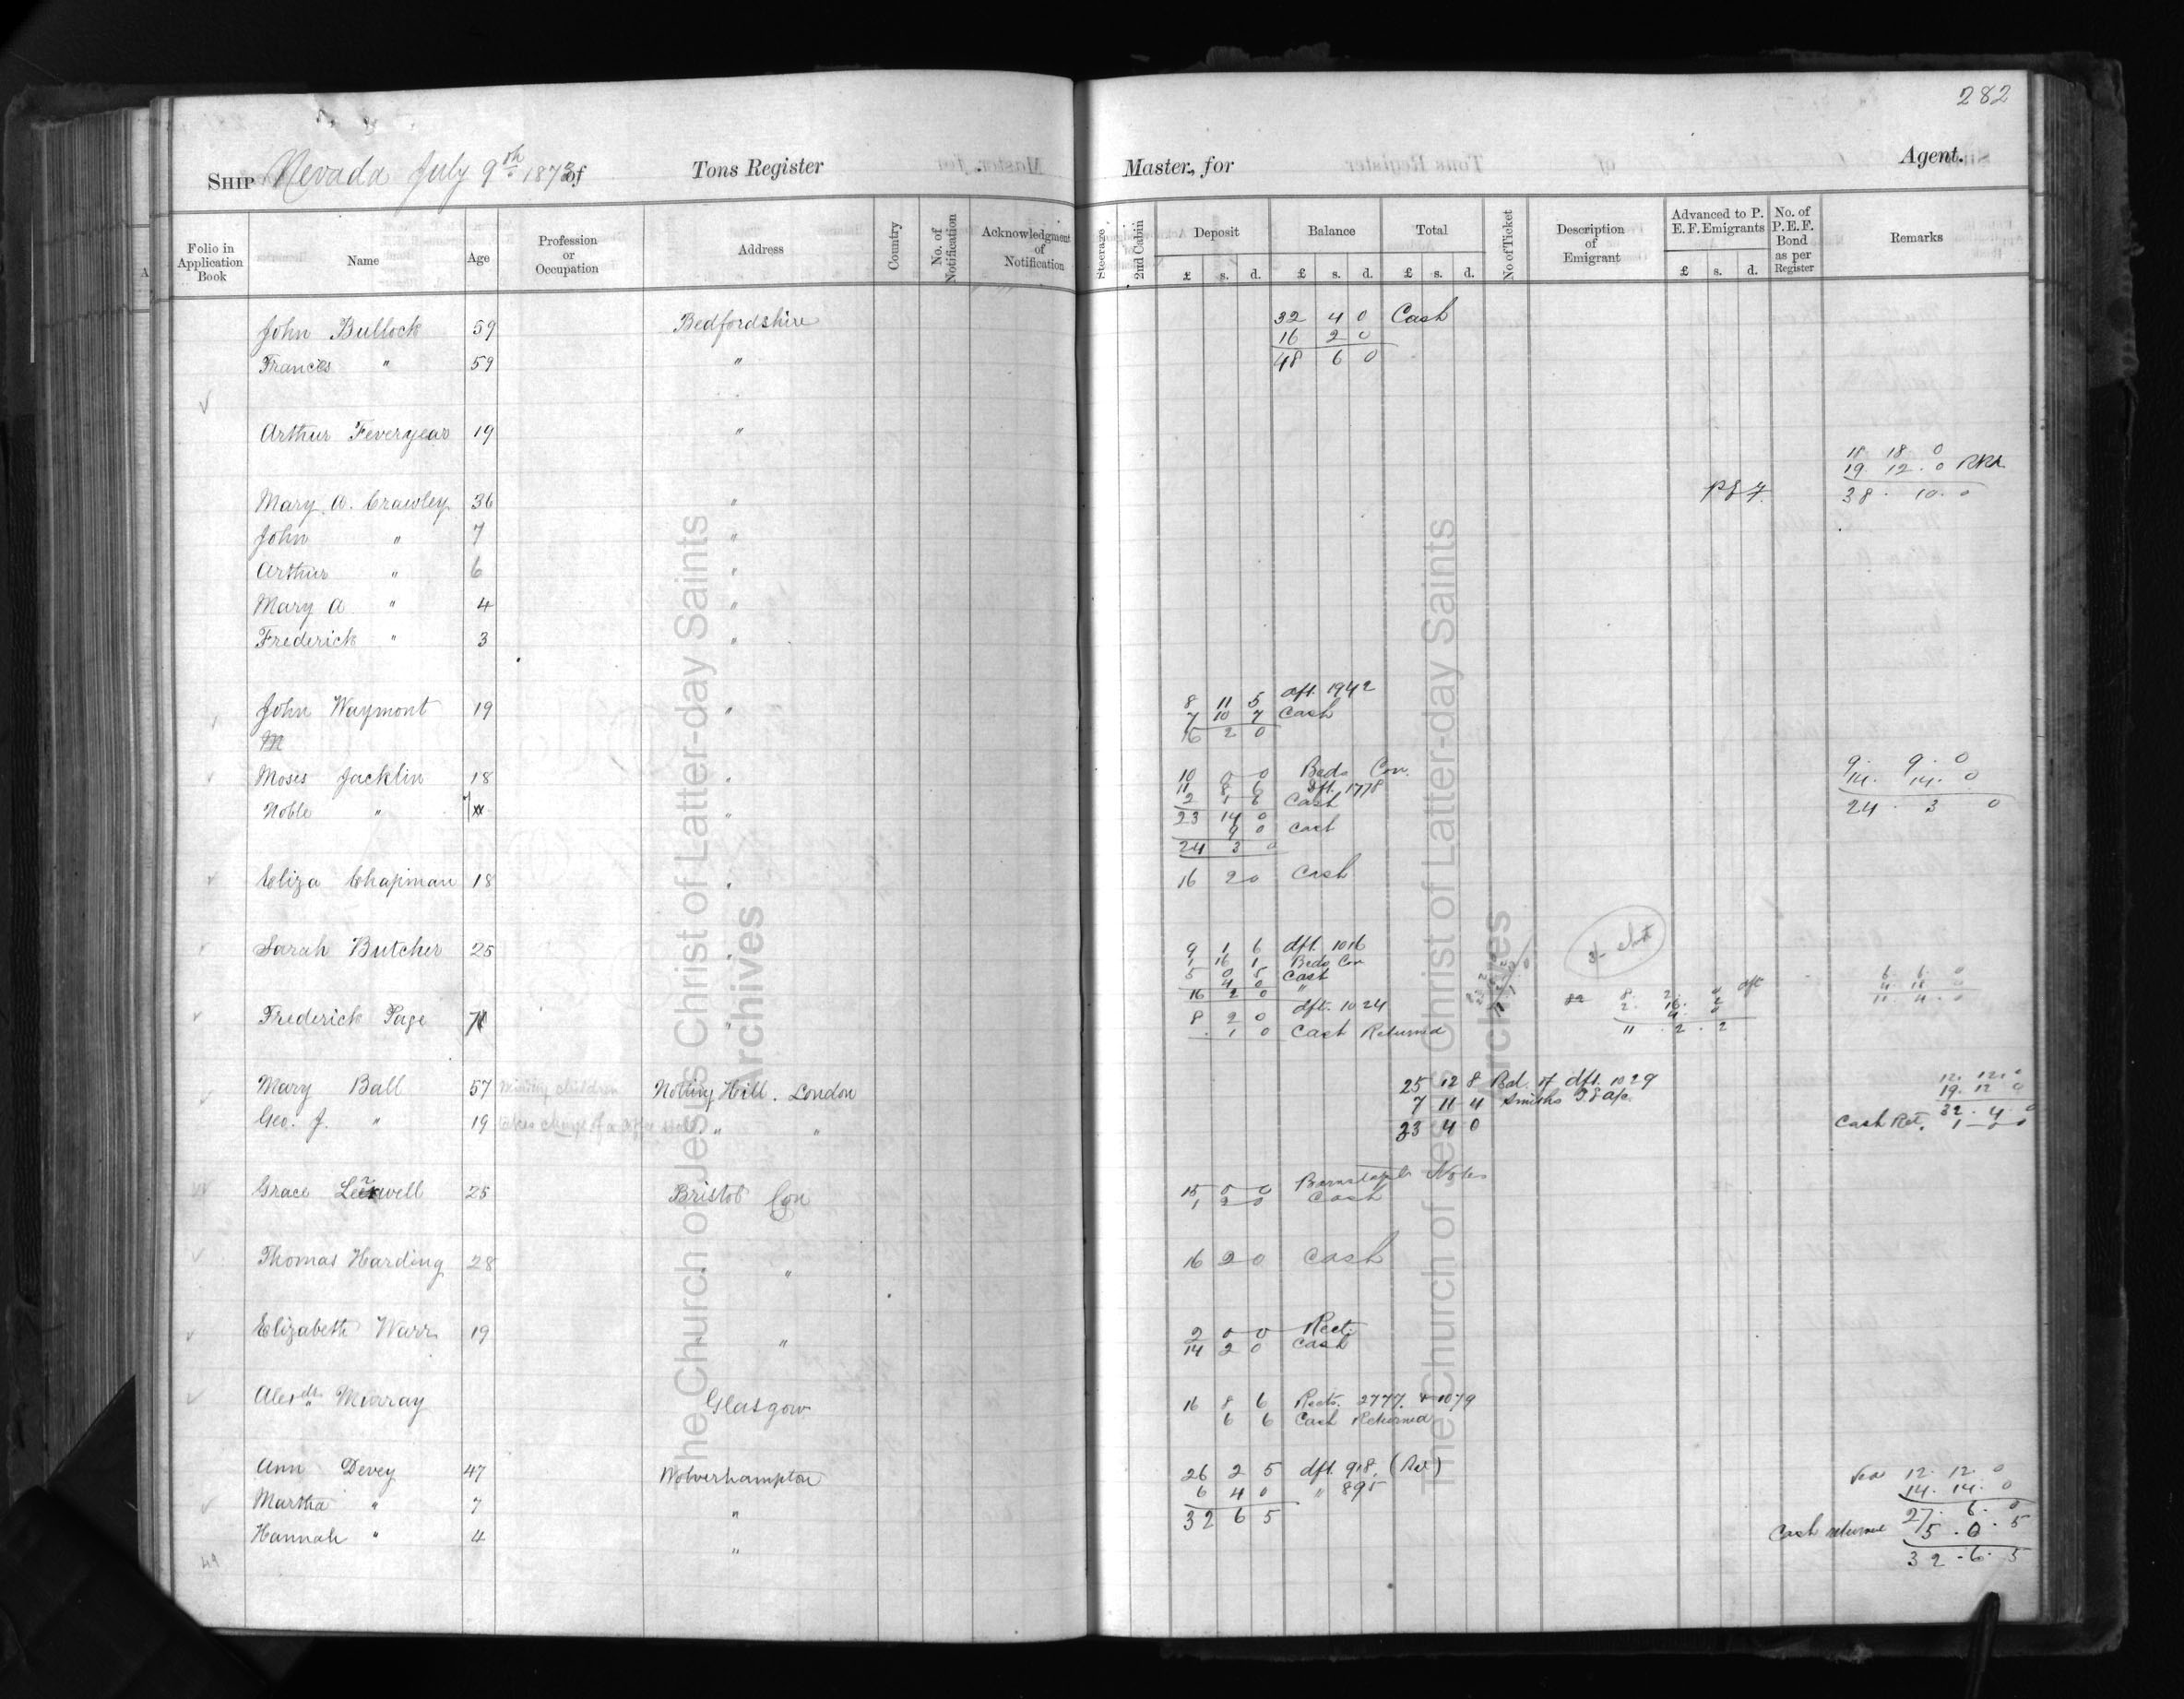 282
SHIP Nevada July 9th 1873 of Tons Register Master, for Agent.
Folio in Application Book Name Age Profession or Occupation Address Country No. of Notification Acknowledgment of Notification Steerage 2nd Cabin Deposit Balance Total No of Ticket Description of Emigrant Advanced to P. E. F. Emigrants No. of P. E. F. Bond as per Register Remarks
£ s. d. £ s. d. £ s. d. £ s. d.
John Bullock 59 Bedfordshire 32 4 0 Cash
16 2 0
Frances " 59 " 48 6 0
Arthur Feveryear 19 "
18 18 0
19. 12. 0
Mary A. Crawley 36 " 38. 10. 0
John " 7 "
Arthur " 6 "
Mary A " 4 "
Frederick " 3 "
8 11 5 dft. 1942
John Waymont 19 " 7 10 7 Cash
M 16 2 0
Moses Jacklin 18 " 10 0 0 Beds Con. 9. 9. 0
11 8 6 dft. 1778 14. 14. 0
Noble " " 2 5 6 Cash 24. 3 0
23 14 0
9 0 Cash
24 3 0
Eliza Chapman 18 " 16 2 0 Cash
Sarah Butcher 25 9 1 6 dft. 1016
1 16 1 Beds Con
5 0 5 Cash 6. 6. 0
4 0 "
16 2 0 11. 4. 0
Frederick Page 8 2 0 dft. 1024
. 1 0 Cash Returned 11. 2. 2
Mary Ball 57 Notting Hill. London 25 12 8 Bal. of dft. 1029 12. 12. 0
Geo. J. " 19 " " 7 11 4 Smiths 19. 12 0
33 4 0 32. 4. 0
Cash Ret. 1 0 0
Grace Leerwell 25 Bristol Con 15 0 0 Barnstaple Notes
1 2 0 Cash
Thomas Harding 28 " 16 2 0 Cash
Elizabeth Warr 19 " 2 0 0 Rect.
14 2 0 Cash
Alexdr. Murray Glasgow 16 8 6 Rects. 2777. & 1079
6 6 Cash Returned
Ann Devey 47 Wolverhampton 26 2 5 dft. 918. 12. 12. 0
Martha " 7 " 6 4 0 " 895 14. 14. 0
32 6 5 27. 6. 0
Hannah " 4 " Cash returned 5. 0. 5
49 32. 6. 5
The Church of Jesus Christ of Latter-day Saints
Archives
The Church of Jesus Christ of Latter-day Saints
Archives